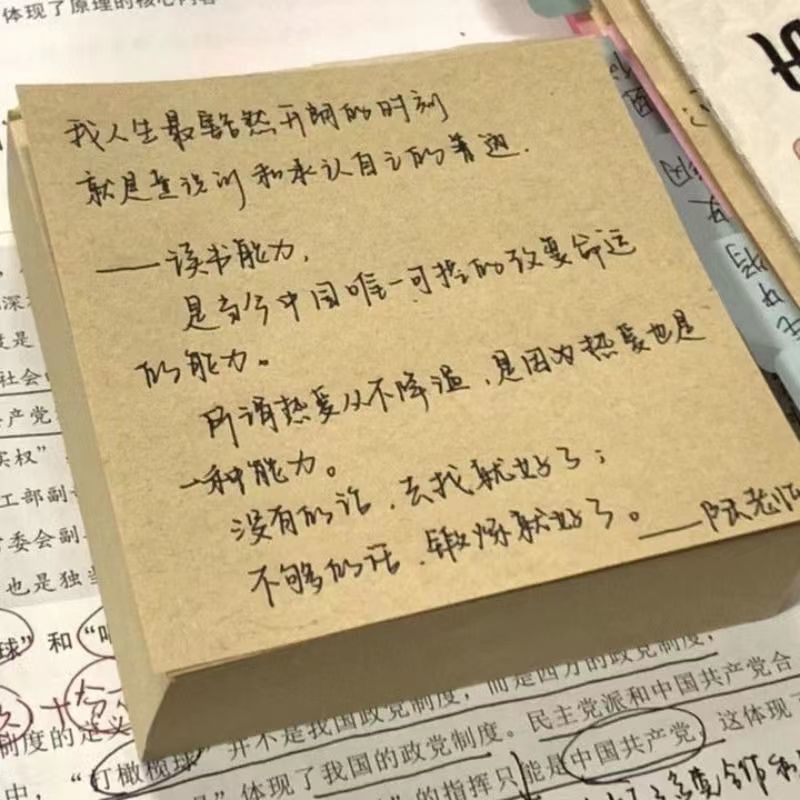 体现了原理的核心内容
我人生最豁然开朗的时刻
就是意识到和承认自己的普通.
——读书能力,
是当今中国唯一可控的改变命运
的能力。
所谓热爱从不降温,是因为热爱也是
一种能力。
没有的话,去找就好了;
不够的话,锻炼就好了。——阮老师
深
度是
社会
共产党
实权”
工部副
委会副
也是独当
球”和“
制度的定义
并不是我国政党制度,而是西方的政党制度,
中,“打橄榄球”体现了我国的政党制度。民主党派和中国共产党合
的指挥只能是中国共产党,这体现了